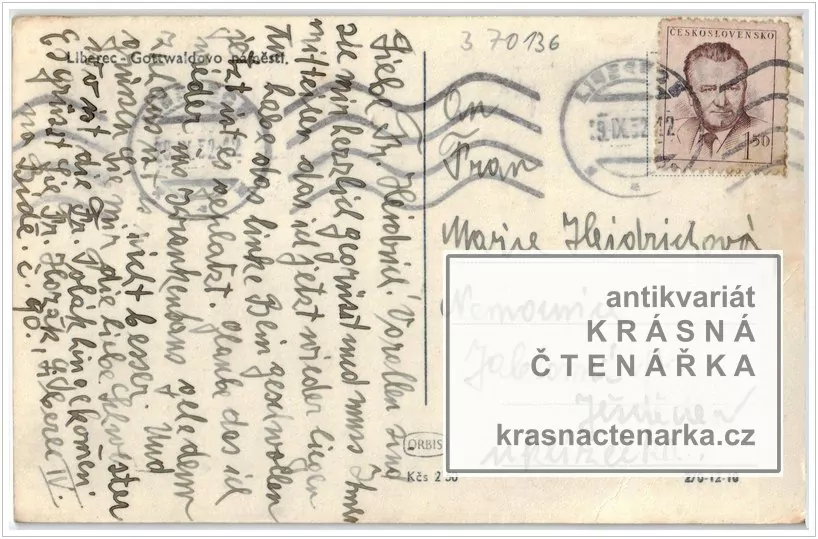 Liberec - Gottwaldovo náměstí.
3 70136
ČESKOSLOVENSKO
1 50
LIBEREC
9.IX.52.12
Liebe Fr. Heidrich! Vor allen sind
sie mir herzlich gegrüsst und muss Ihnen
mitteilen das ich jetzt wieder liegen
tu, habe das linke Bein geschwollen
jetzt ist es geplatzt. Glaube das ich
wieder ins Krankenhaus
nicht besser. Und
grüssen Sie mir die liebe Schwester
und die Fr.
Es grüsst Sie Fr. Horák, Liberec IV.
Na Bídě. č. 90.
An
Frau
Marie Heidrichová
Nemocnice
Jablonné
ORBIS
Kčs 2 50
270-12-10
antikvariát
KRÁSNÁ
ČTENÁŘKA
krasnactenarka.cz